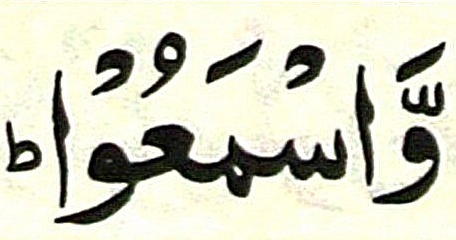 وَّاسْمَعُوْا ؕ